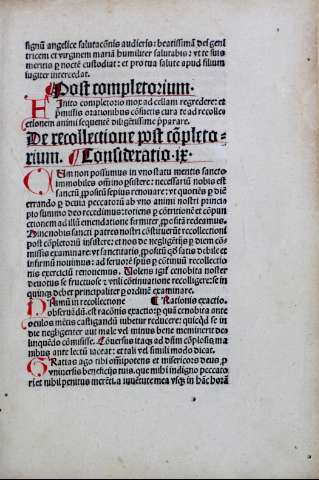 signũ angelice salutacõnis audieris: beatissimã dei geni
tricem et virginem mariã humiliter salutabis: vt te suis
meritis ꝑ nocte custodiat: et pro tua salute apud filium
iugiter intercedat.
¶ Post completorium.
FInito completorio mox ad cellam regredere: et
ꝓmissis orationibus cõsuetis cura te ad recolle
ctionem animi sequenti diligẽtissime p̃parare.
De recollectione post cõpleto-
rium. ¶ Consideratio .ix.
CUm non possumus in vno statu mentis sancto
immobiles oĩno ꝑsistere: necessariũ nobis est
sanctũ ꝓpositũ sepius renouare: vt quotiẽs ꝑ diẽ
errando ꝑ deuia peccatorũ ab vno animi nostri princi
pio summo deo recedimus: totiens ꝑ cõtritionẽ et cõpun
ctionem ad illũ emendatione firmiter ꝓposita redeamus.
Hinc nobis sancti patres nostri cõstituerũt recollectionẽ
post cõpletoriũ insistere: et nos de negligẽtijs ꝑ diem cõ
missis examinare: vt sanctitatis ꝓpositũ qď satis debile et
infirmũ nouimus: ad seruorẽ spũs ꝑ continuũ recollectio
nis exerciciũ renouemus. Volens igit cenobita noster
deuotus se fructuose ⁊ vtili cõtinuatione recolligere: se in
quinqꝫ debet principaliter ꝑ ordinẽ examinare.
PRimũ in recollectione ¶ Rationis exactio.
obseruãdũ. est racõnis exactio: ꝑ quã cenobita ante
oculos mẽtis castigandã iubetur reducere: quicqď se in
die negligenter aut male vel minus bene meminerit de
linquẽdo cõmisisse. Cõuersus itaqꝫ ad dñm cõplosis ma
nibus ante lectũ iaceat: et tali vel simili modo dicat.
GRatias ago tibi oĩpotens et misericors deus ꝓ
vniuersis beneficijs tuis. que mihi indigno peccato
ri et nihil penitus merẽti. a iuuẽtute mea vsqꝫ in hãc horã